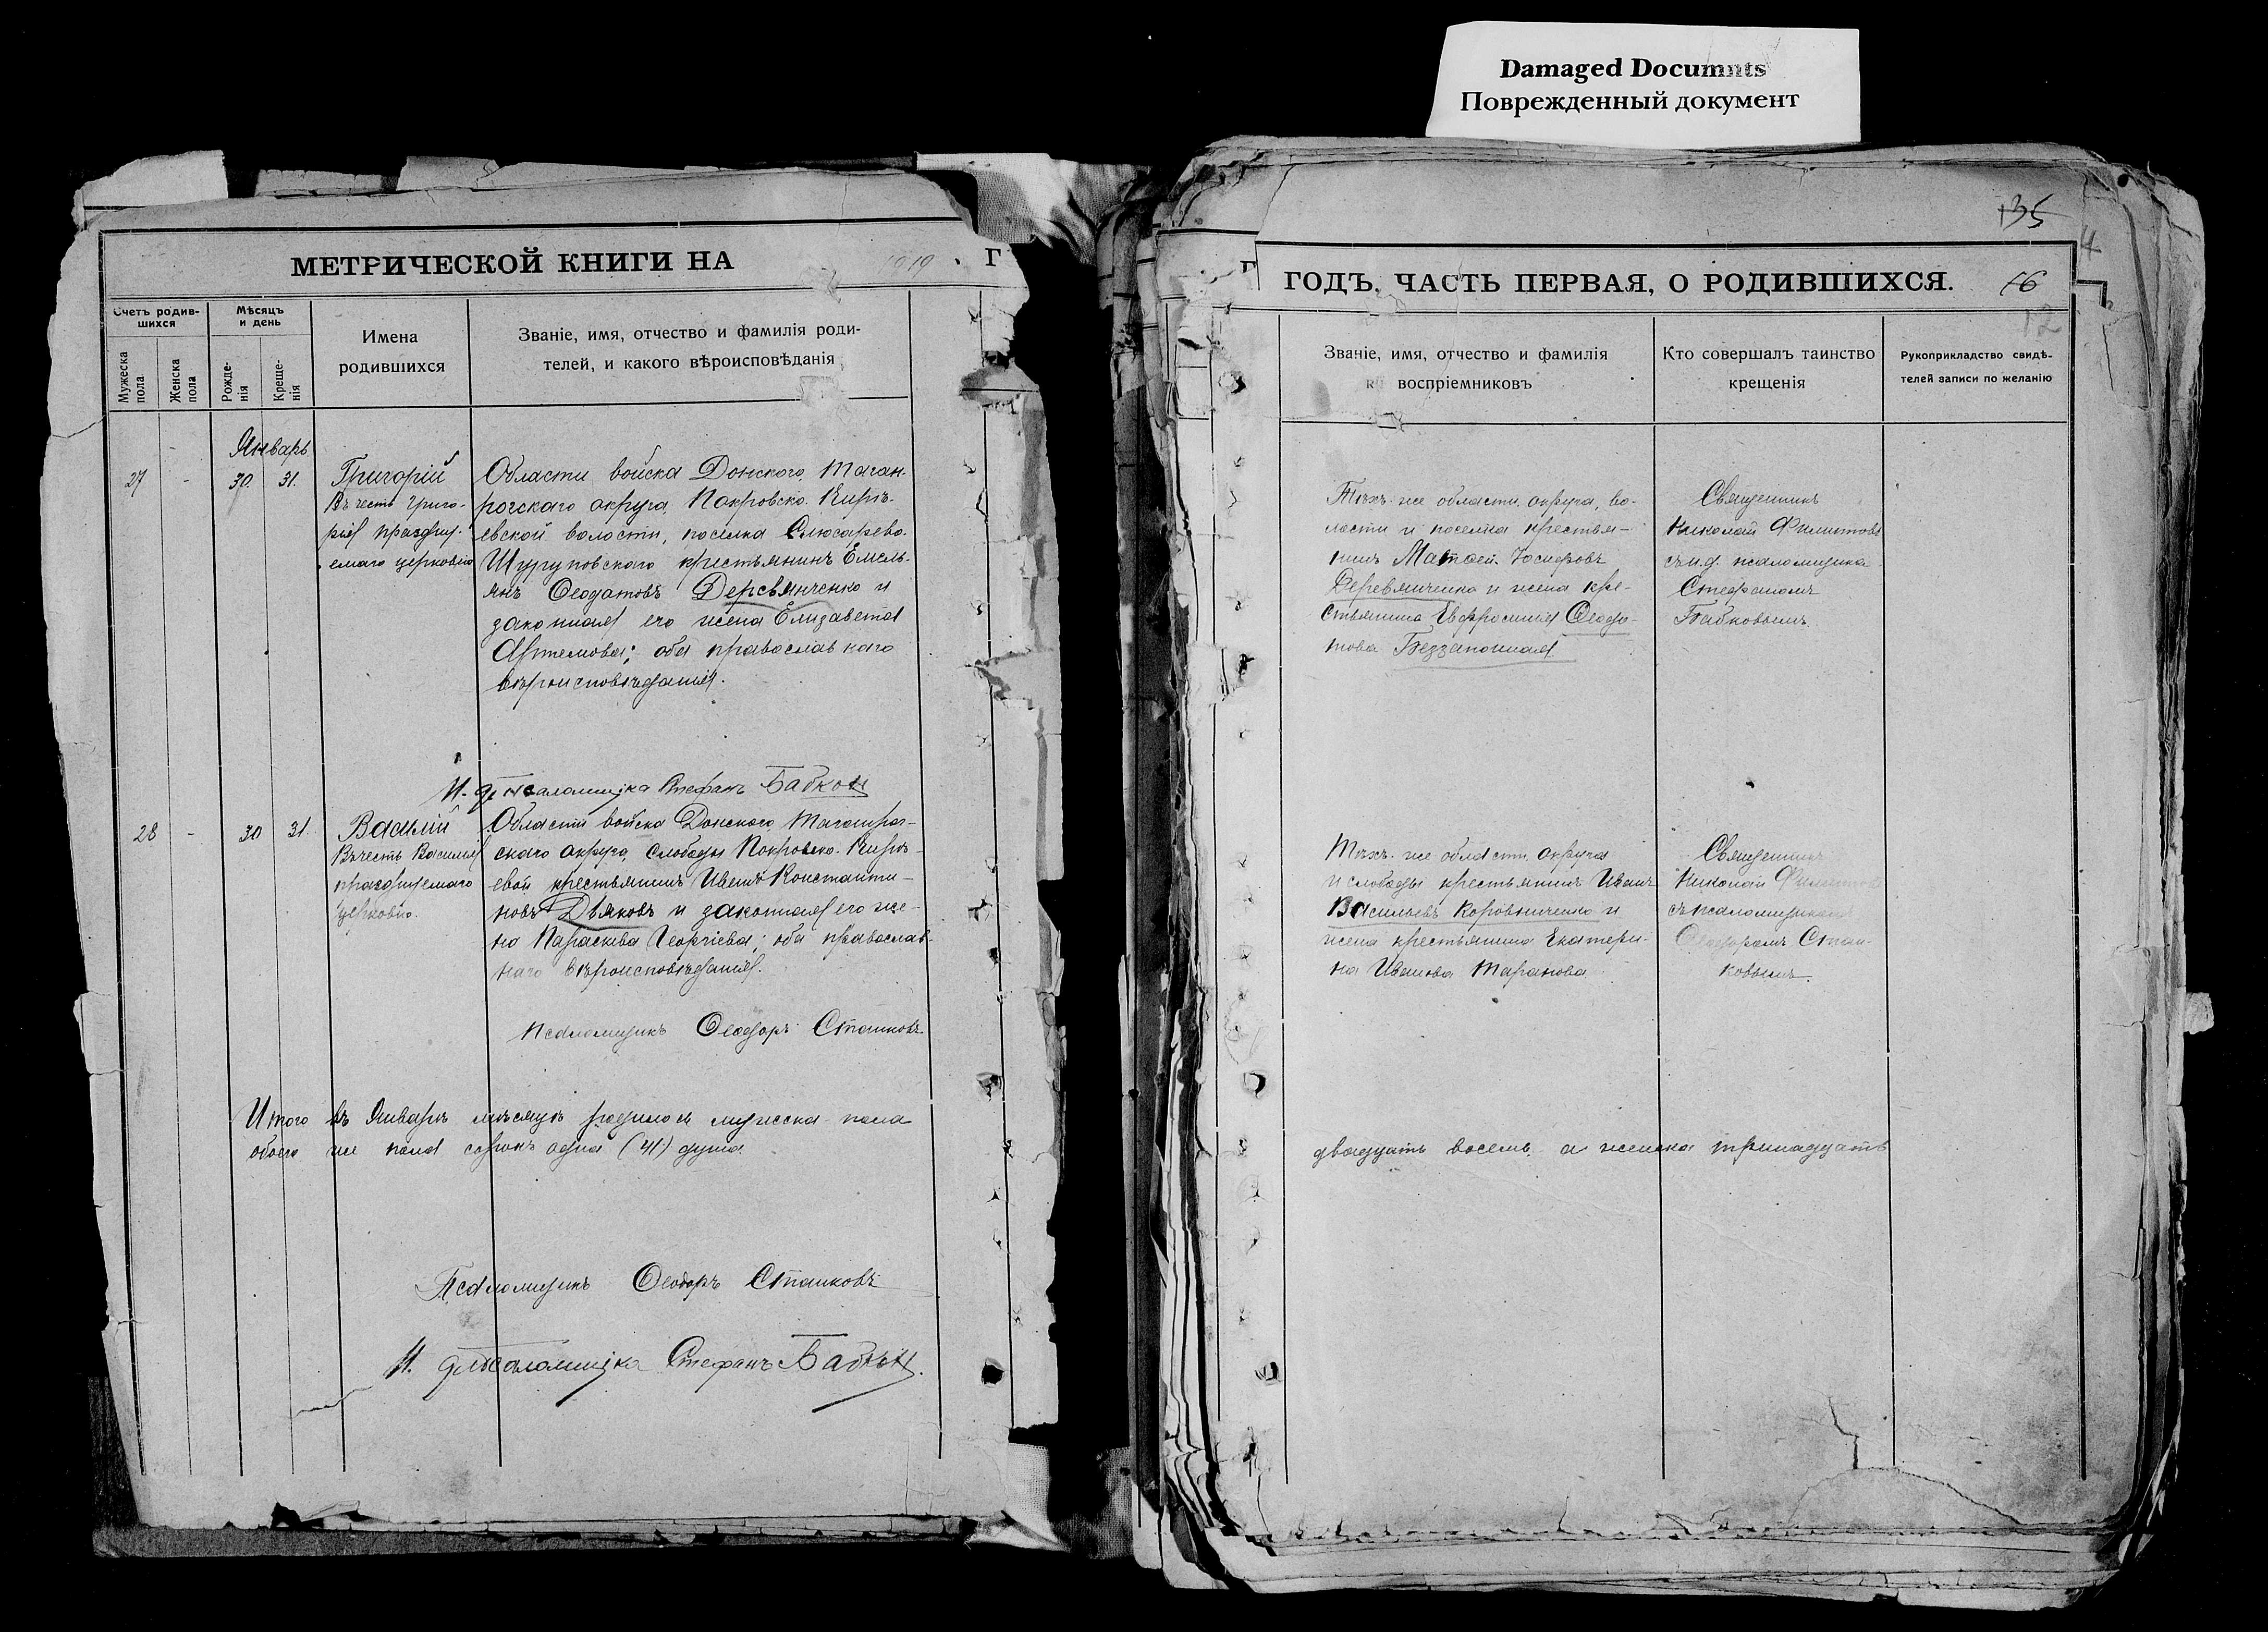 Damaged Documnts
Поврежденный документ
МЕТРИЧЕСКОЙ КНИГИ НА 1919 . Г
Счетъ родив-
шихся
Мѣсяцъ
и день
Мужеска
пола.
Женска
пола
Рожде-
нія
Креще-
нія
Имена
родившихся
Званіе, имя, отчество и фамилія роди-
телей, и какого вѣроисповѣданія
Январь
27 - 30. 31.
Григорій
Въ честь Григо-
рія празднy-
емаго церковію
Области войска Донского, Таган-
рогскаго округа, Покровско-Кирѣ-
евской волости, поселка Слюсарево-
Шуруповскаго крестьянинъ Емель-
янъ Ѳеодотовъ Деревянченко и
законная его жена Елизавета
Артемова; оба православнаго
вѣроисповѣданія.
И. д. псаломщика Стефанъ Бабков
28 - 30 31.
Василій
Въ честь Василія
празднуемаго
церковію.
Области войска Донского Таганрог-
скаго округа, слободы Покровско-Кирѣ-
евой крестьянинъ Иванъ Константи-
новъ Дьяковъ и законная его же-
на Параскева Георгіева; оба православ-
наго вѣроисповѣданія.
Псаломщикъ Ѳеодоръ Станковъ
Итого въ Январѣ мѣсяцѣ родилось мужеска пола
обоего же пола сорокъ одна (41) душа.
Псаломщикъ Ѳеодоръ Станковъ
И. д. псаломщика Стефанъ Бабков.
135
4
ГОДЪ, ЧАСТЬ ПЕРВАЯ, О РОДИВШИХСЯ. 16
12
Званіе, имя, отчество и фамилія
воспріемниковъ
Кто совершалъ таинство
крещенія
Рукоприкладство свидѣ-
телей записи по желанію
Тѣхъ же области, округа, во-
лости и поселка крестья-
нинъ Матѳей Іосифовъ
Деревянченко и жена кре-
стьянина Евфросинія Ѳеодо-
това Беззапонная
Священникъ
Николай Филиповъ
съ и.д. псаломщика
Стефаномъ
Бабковымъ.
Тѣхъ же области, округа
и слободы крестьянинъ Иванъ
Васильевъ Коровниченко и
жена крестьянина Екатери-
на Иванова Таранова
Священникъ
Николай
съ псаломщикомъ
Ѳеодоромъ Стан-
ковымъ.
двадцать восемь, а женска тринадцать